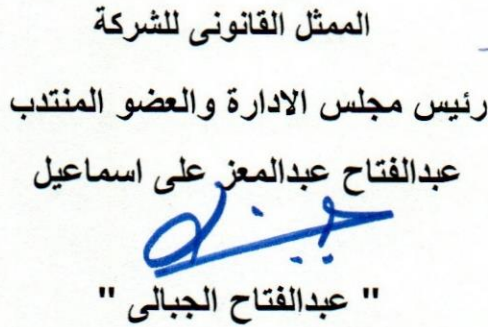 الممثل القانونى للشركة
رئيس مجلس الادارة والعضو المنتدب
عبدالفتاح عبدالمعز على اسماعيل
" عبدالفتاح الجبالى "